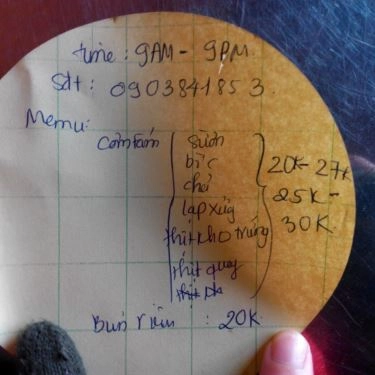 time : 9AM - 9PM.
Sđt : 0903841853.
Menu:
Cơm tấm
sườn
bì c
chả
lạp xưởng
thịt kho trứng
thịt quay
20K - 27K
25K -
30K
Bún riêu : 20K